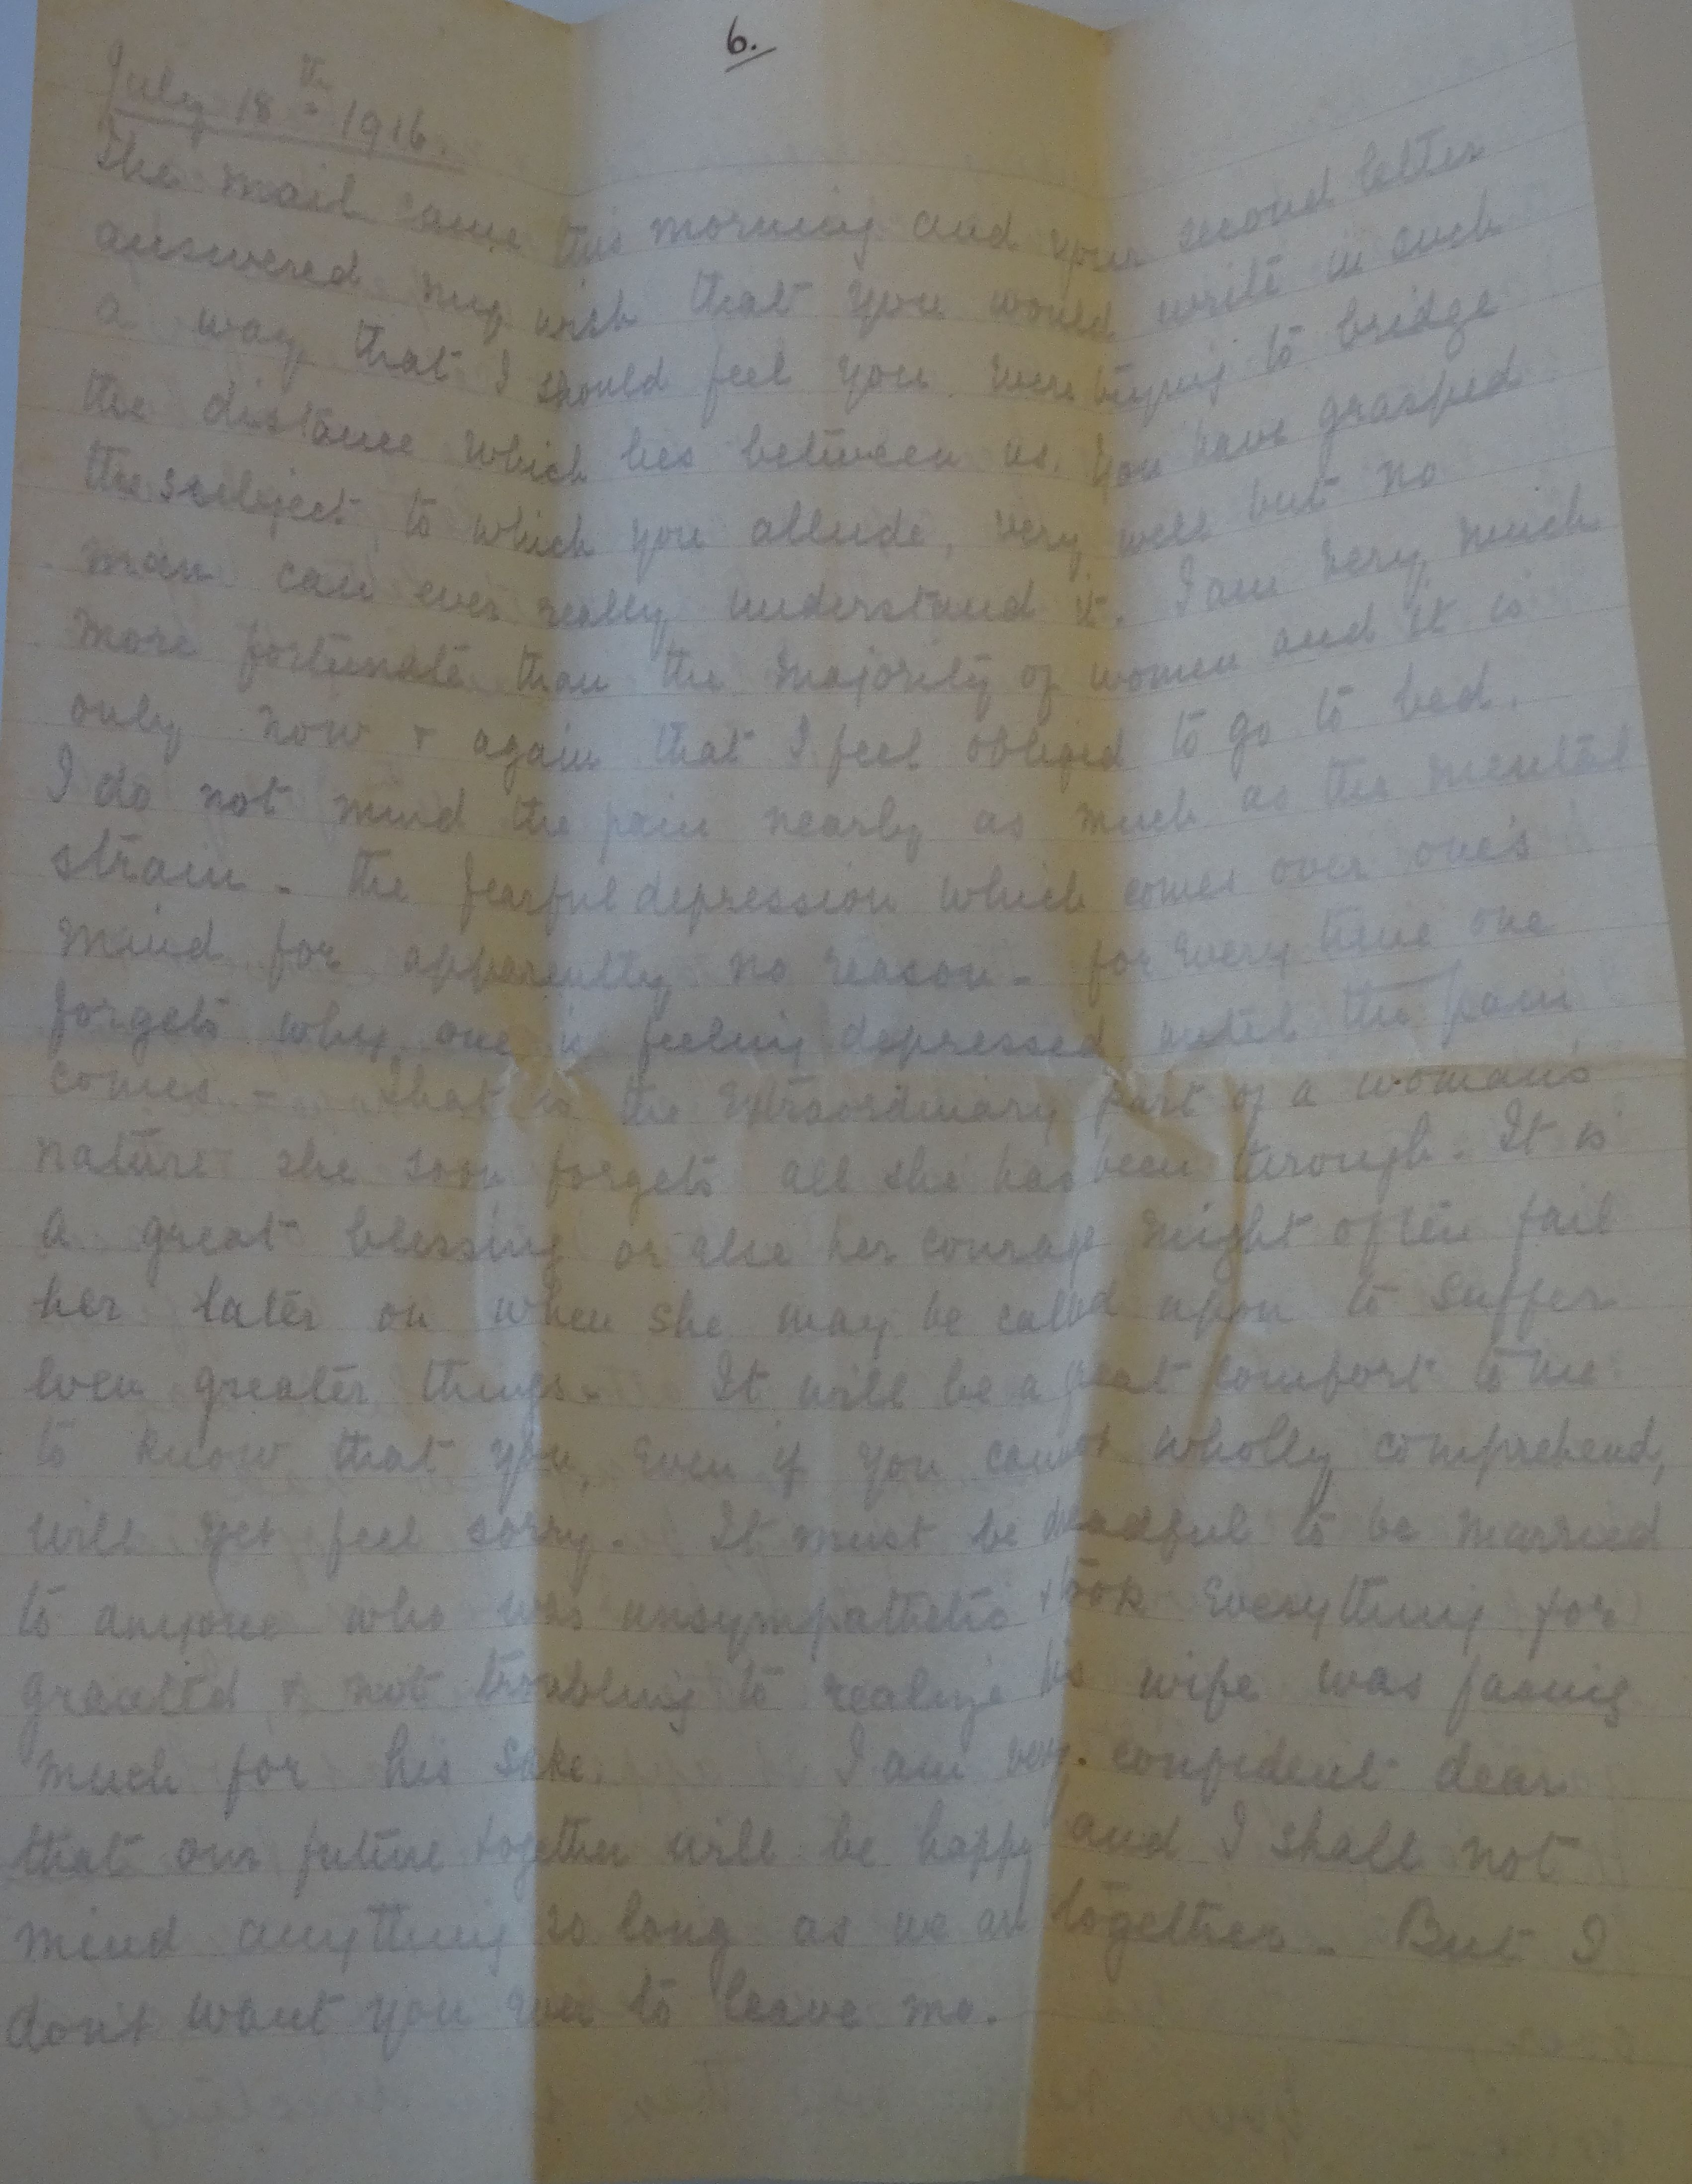 6.
July 18th 1916.
The mail came this morning and your second letter
answered my wish that you would write in such
a way that I should feel you were trying to bridge
the distance which lies between us. You have grasped
the subject to which you allude, very well but no
man can ever really understand it. I am very much
more fortunate than the majority of women and it is
only now & again that I feel obliged to go to bed.
I do not mind the pain nearly as much as the mental
strain - the fearful depression which comes over one's
mind for apparently no reason - for every time one
forgets why one is feeling depressed until the pain
comes - That is the extraordinary part of a woman's
nature she soon forgets all she has been through. It is
a great blessing or else her courage might often fail
her later on when she may be called upon to suffer
even greater things. It will be a great comfort to me
to know that you, even if you cannot wholly comprehend,
will yet feel sorry. It must be dreadful to be married
to anyone who was unsympathetic & took everything for
granted & not troubling to realize his wife was facing
much for his sake. I am very confident dear
that our future together will be happy and I shall not
mind anything so long as we are together. But I
don't want you ever to leave me.